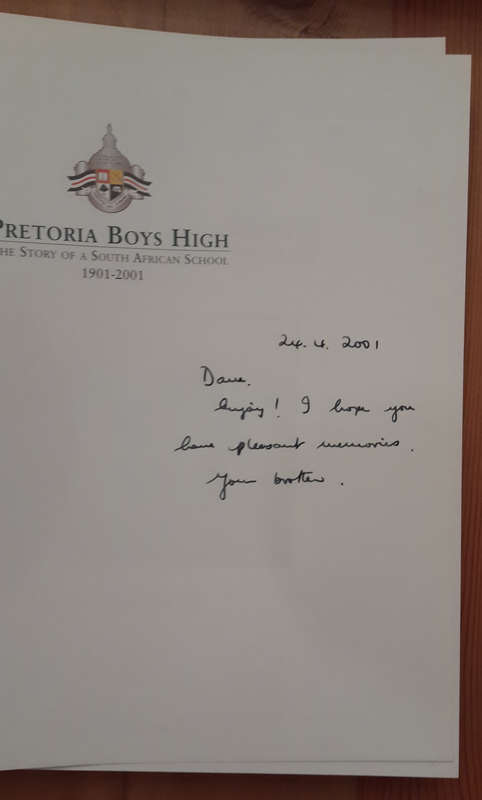 PRETORIA BOYS HIGH
THE STORY OF A SOUTH AFRICAN SCHOOL
1901-2001
24.4.2001
Dave.
Enjoy! I hope you
have pleasant memories.
Your brother.